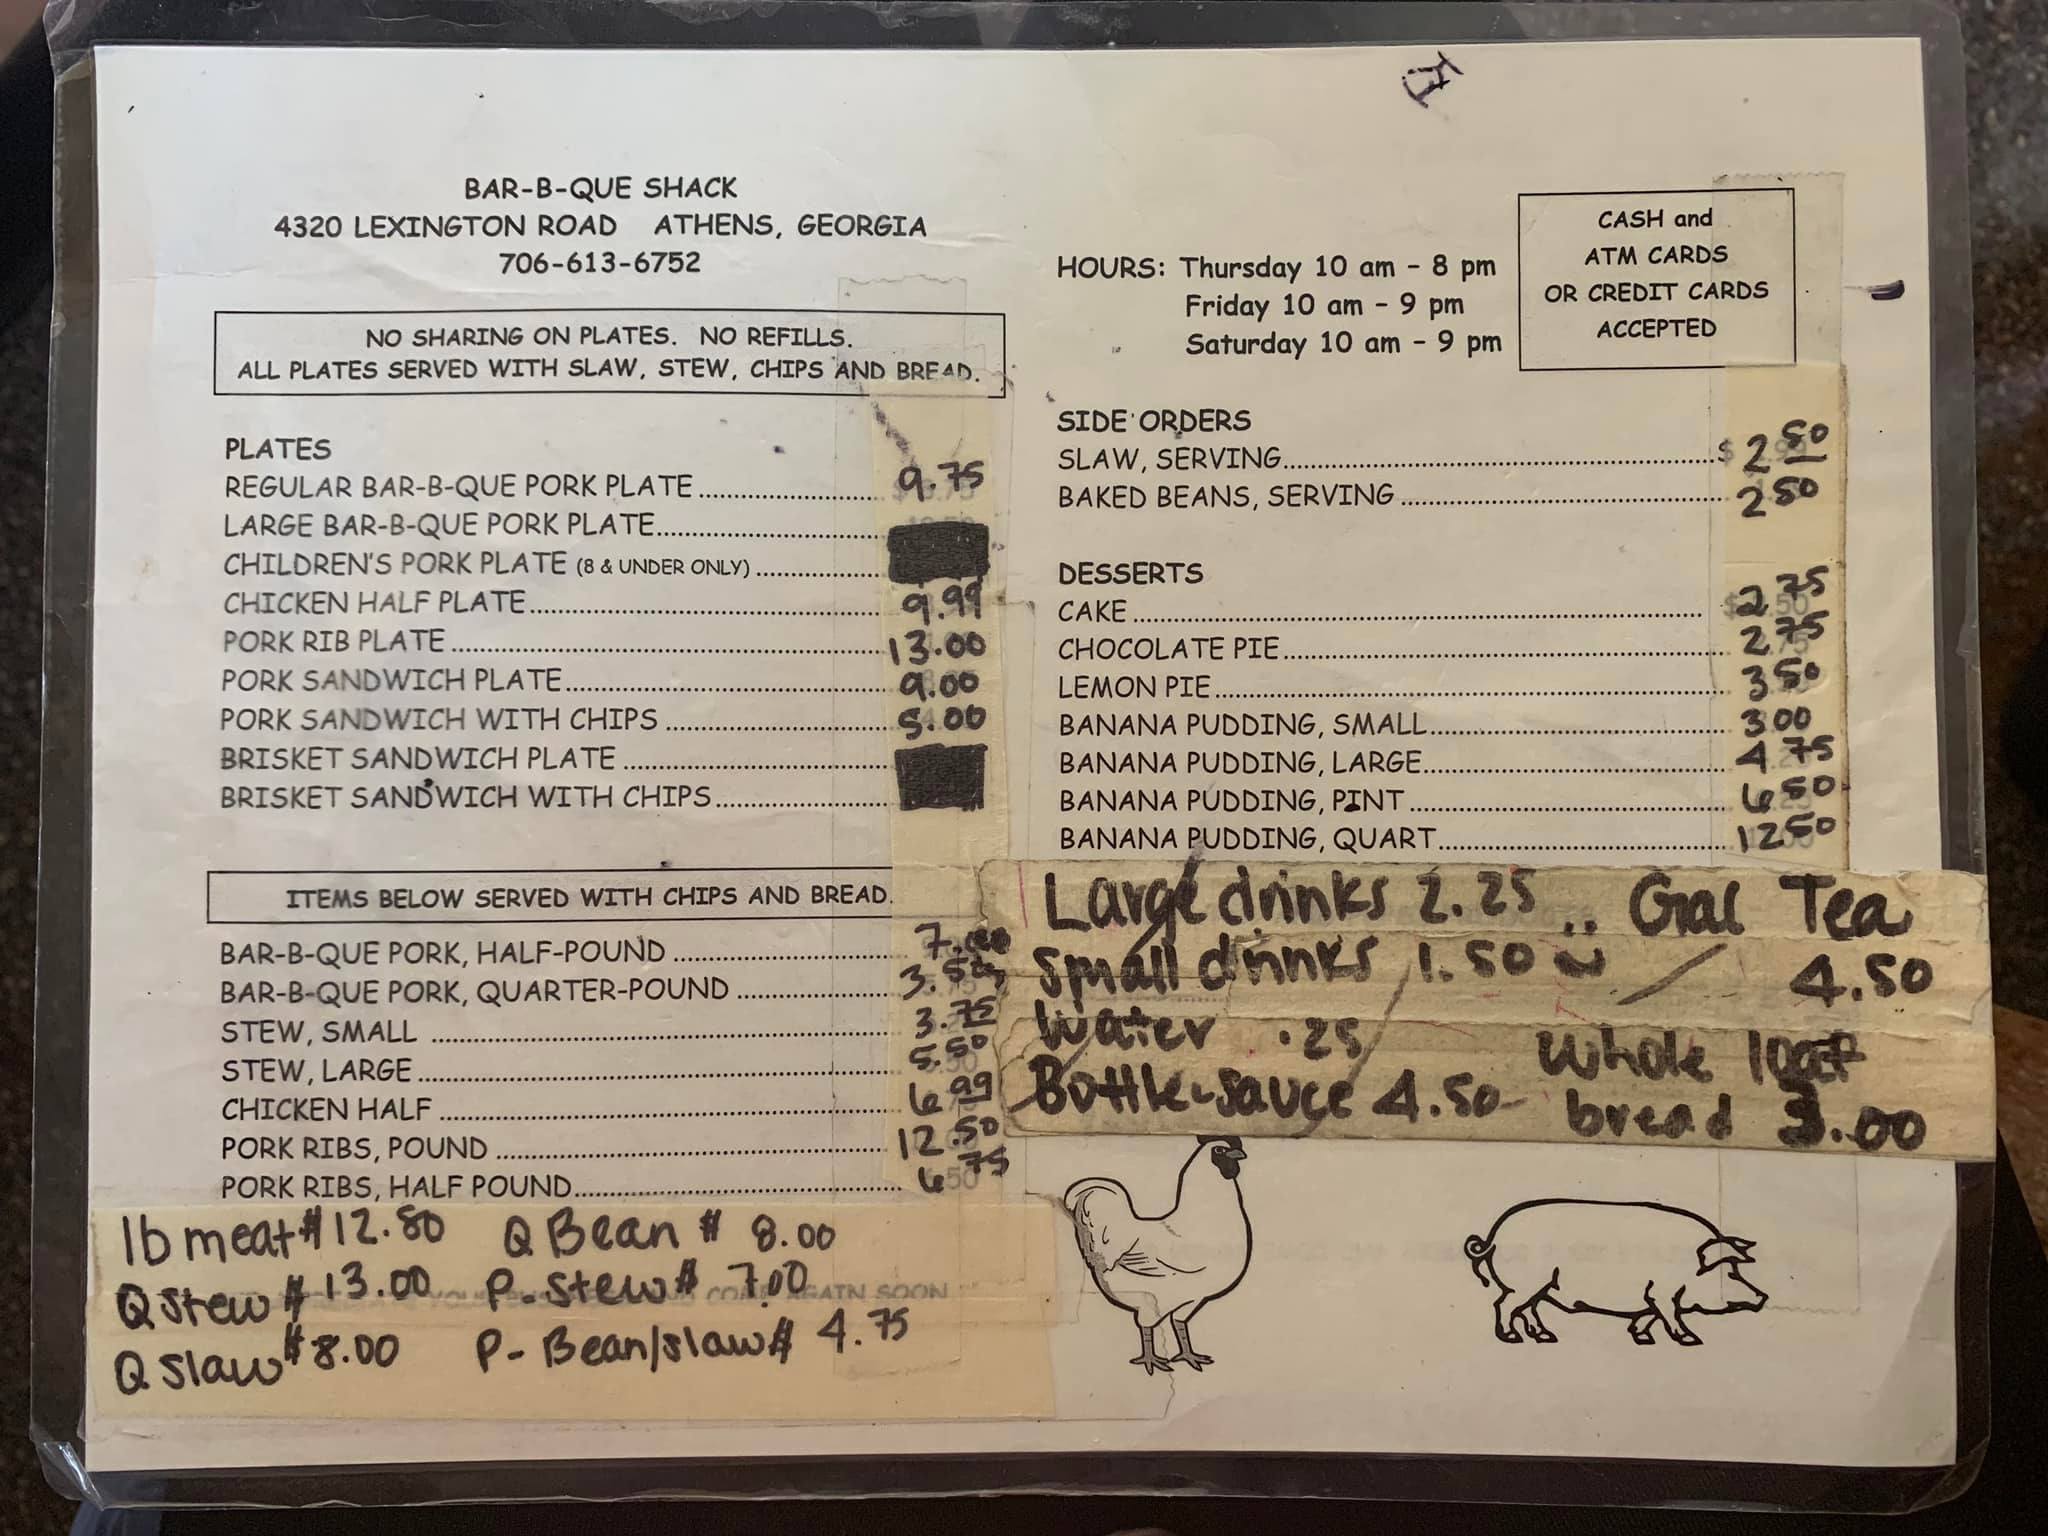 BAR-B-QUE SHACK
4320 LEXINGTON ROAD ATHENS, GEORGIA
706-613-6752
NO SHARING ON PLATES. NO REFILLS.
ALL PLATES SERVED WITH SLAW, STEW, CHIPS AND BREAD.
PLATES
REGULAR BAR-B-QUE PORK PLATE 9.75
LARGE BAR-B-QUE PORK PLATE
CHILDREN'S PORK PLATE (8 & UNDER ONLY)
CHICKEN HALF PLATE 9.99
PORK RIB PLATE 13.00
PORK SANDWICH PLATE 9.00
PORK SANDWICH WITH CHIPS 5.00
BRISKET SANDWICH PLATE
BRISKET SANDWICH WITH CHIPS
ITEMS BELOW SERVED WITH CHIPS AND BREAD.
BAR-B-QUE PORK, HALF-POUND 7.00
BAR-B-QUE PORK, QUARTER-POUND 3.50
STEW, SMALL 3.75
STEW, LARGE 5.50
CHICKEN HALF 6.99
PORK RIBS, POUND 12.50
PORK RIBS, HALF POUND 6.75
lb meat $12.50 Q Bean $ 8.00
Q Stew $ 13.00 P-Stew $ 7.00
Q Slaw $8.00 P-Bean/slaw $ 4.75
COME AGAIN SOON
HOURS: Thursday 10 am - 8 pm
Friday 10 am - 9 pm
Saturday 10 am - 9 pm
CASH and
ATM CARDS
OR CREDIT CARDS
ACCEPTED
SIDE ORDERS
SLAW, SERVING $ 2.50
BAKED BEANS, SERVING 2.50
DESSERTS
CAKE $ 2.75
CHOCOLATE PIE 2.75
LEMON PIE 3.50
BANANA PUDDING, SMALL 3.00
BANANA PUDDING, LARGE 4.75
BANANA PUDDING, PINT 6.50
BANANA PUDDING, QUART 12.50
Large drinks 2.25 Gal Tea
Small drinks 1.50 4.50
Water .25 Whole loaf
Bottle-Sauce 4.50 bread 3.00